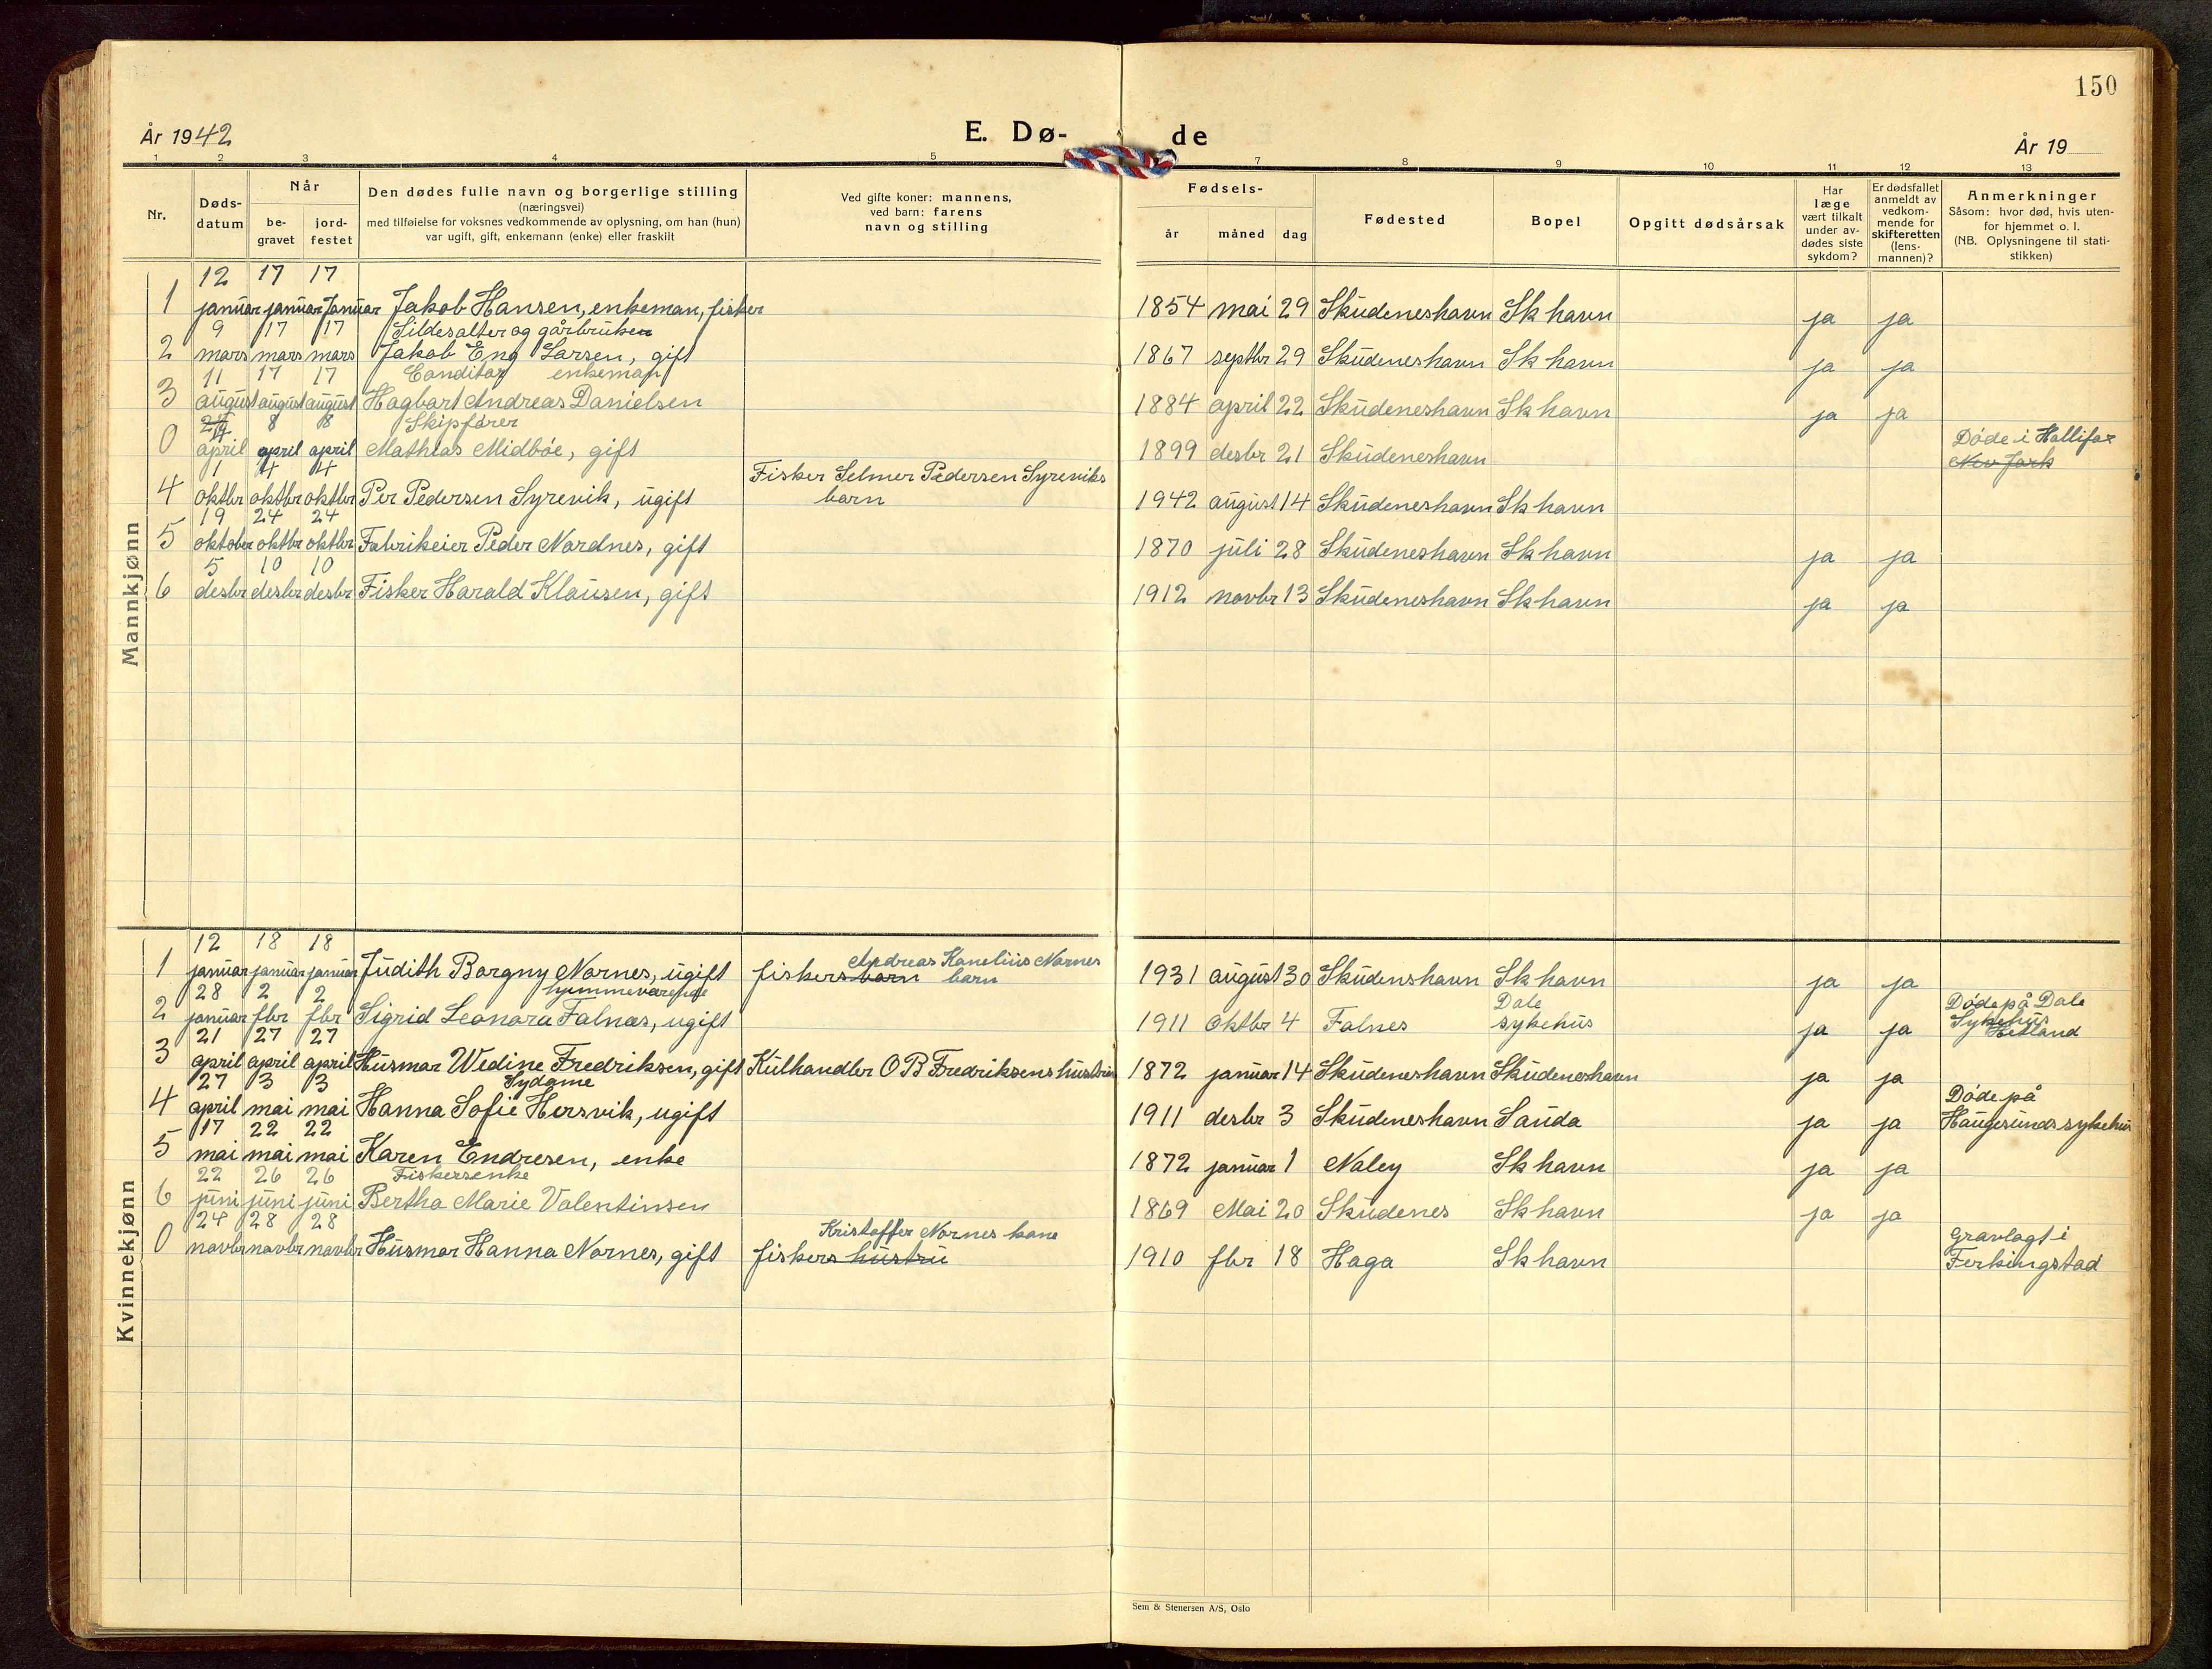 150
År 1942
E. Dø-
de
År 19
1 2 3 4 5 7 8 9 10 11 12 13
Nr.
Døds-
datum
Når
be-
gravet
jord-
festet
Den dødes fulle navn og borgerlige stilling
(næringsvei)
med tilføielse for voksnes vedkommende av oplysning, om han (hun)
var ugift, gift, enkemann (enke) eller fraskilt
Ved gifte koner: mannens,
ved barn: farens
navn og stilling
Fødsels-
år måned dag
Fødested
Bopel
Opgitt dødsårsak
Har
læge
vært tilkalt
under av-
dødes siste
sykdom?
Er dødsfallet
anmeldt av
vedkom-
mende for
skifteretten
(lens-
mannen)?
Anmerkninger
Såsom: hvor død, hvis uten-
for hjemmet o. l.
(NB. Oplysningene til stati-
stikken)
Mannkjønn
12 17 17
1 januar januar Januar Jakob Hansen, enkeman, fisker 1854 mai 29 Skudeneshavn Sk havn ja ja
9 17 17 Sildesalter og gårbruker
2 mars mars mars Jakob Eng Larsen, gift 1867 septbr 29 Skudeneshavn Sk havn ja ja
11 17 17 Conditor enkeman
3 august august august Hagbart Andreas Danielsen 1884 april 22 Skudeneshavn Sk havn ja ja
8 8 Skipfører Døde i Hallifax
0 april april april Mathias Midbøe, gift 1899 desbr 21 Skudeneshavn New Jork
1 4 4 Fisker Selmer Pedersen Syreviks
4 oktbr oktbr oktbr Per Pedersen Syrevik, ugift barn 1942 august 14 Skudeneshavn Sk havn
19 24 24
5 oktober oktbr oktbr Fabrikeier Peder Nordnes, gift 1870 juli 28 Skudeneshavn Sk havn ja ja
5 10 10
6 desbr desbr desbr Fisker Harald Klausen, gift 1912 novbr 13 Skudeneshavn Sk havn ja ja
Kvinnekjønn
12 18 18 Andreas Kanelius Nornes
1 januar januar januar Judith Borgny Nornes, ugift fiskers barn barn 1931 august 30 Skudenshavn Sk havn ja ja
28 2 2 hjemmeværende Dale Døde på Dale
2 januar fbr fbr Sigrid Leonora Falnæs, ugift 1911 oktbr 4 Falnes sykehus ja ja Sykehus
Hetland
21 27 27
3 april april april Husmor Wedine Fredriksen, gift Kulhandler O B Fredriksens hustru 1872 januar 14 Skudeneshavn Skudeneshavn ja ja
27 3 3 Sydame Døde på
4 april mai mai Hanna Sofie Hersvik, ugift 1911 desbr 3 Skudeneshavn Sauda ja ja Haugesunds sykehus
17 22 22
5 mai mai mai Karen Endresen, enke 1872 januar 1 Naley Sk havn ja ja
22 26 26 Fiskersenke
6 juni juni juni Bertha Marie Valentinsen 1869 Mai 20 Skudenes Sk havn ja ja
24 28 28 Kristoffer Nornes kone Gravlagt i
0 novbr novbr novbr Husmor Hanna Nornes, gift fiskers hustru 1910 fbr 18 Haga Sk havn Ferkingstad
Sem & Stenersen A/S, Oslo